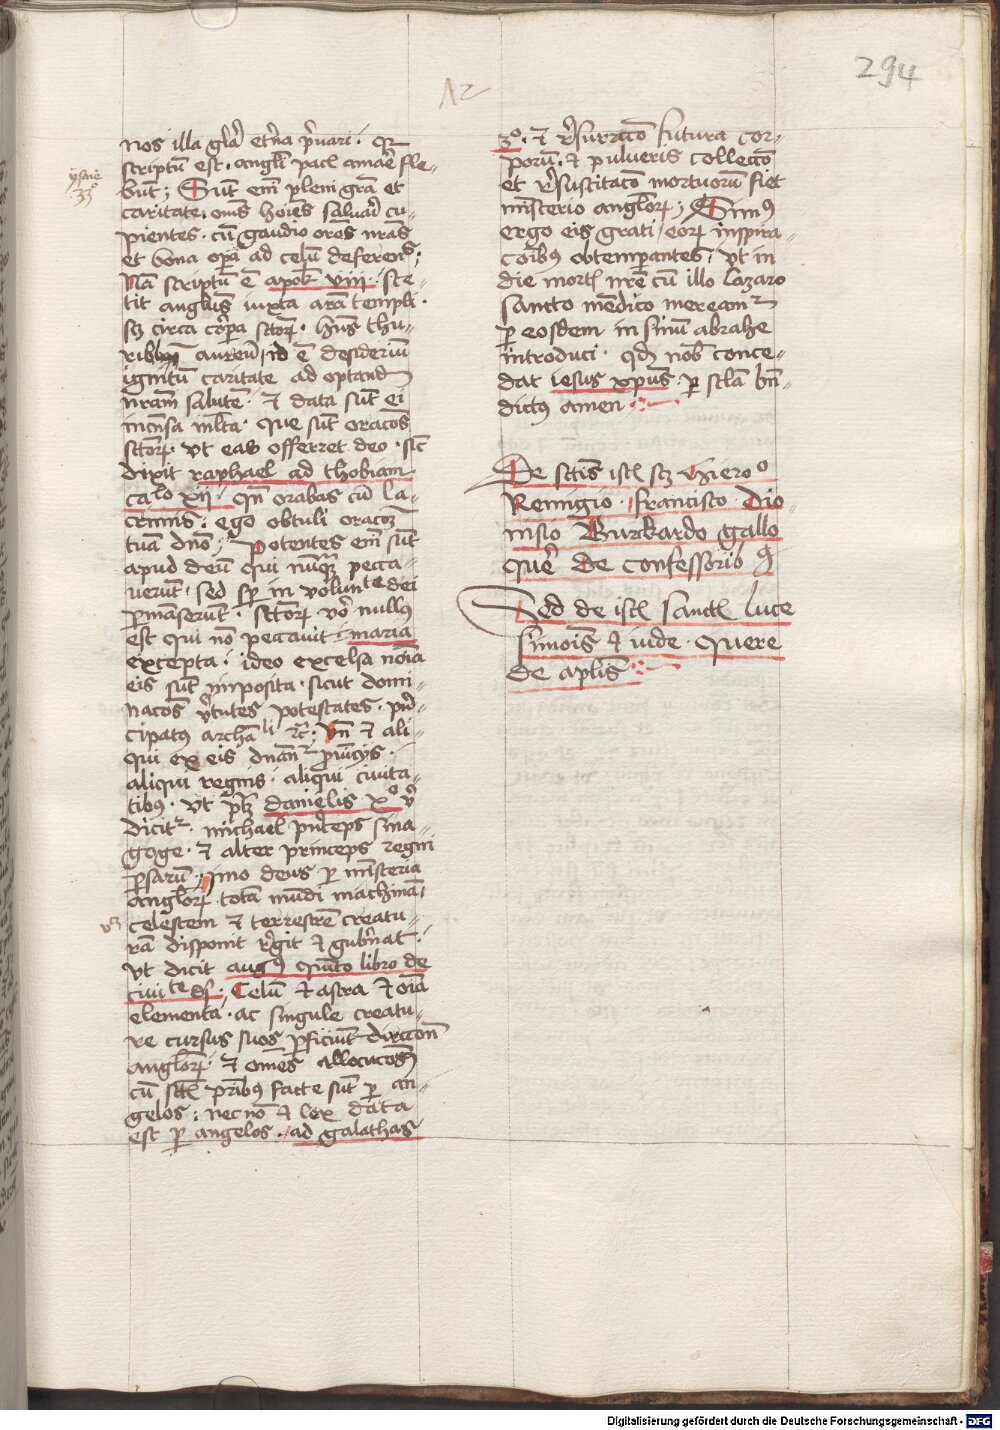 294
12
nos illa gl̄a et̄na p̄uari · Qr
scriptū est · angl̄i pacī amar̄e fle-
ysaie
33°
bunt; Sūt em̄ pleni grā et
caritate · om̄s hoīes saluari cu-
pientes · cū gaudio or̄oes nr̄as
et bona op̄a ad celū deferens;
Nā scriptū ē apok̄ viii · ste-
tit angelus iuxta arā templi ·
sz circa corp̄a sctor̄ · hn̄s thu-
ribulum aureū · id ē desideriū
ignitū caritate ad optand
nr̄am salutē · et data sūt ei
incensa ml̄ta · que sūt oracōes
sctor̄ · vt eas offerret deo · sic
dixit raphael ad thobiam
calo xij · Qn̄ orabas cū la-
crimis · ego obtuli oracōem
tuā dn̄o; Potentes em̄ sūt
apud deū qui nūq̄ pecca-
uerūt · sed sp̄ in voluntte dei
p̄manserūt · sctor̄ vo nullus
est qui nō peccauit · maria
excepta · ideo excelsa noīa
eis sūt imposita · sicut domi-
nacōes v̄tutes potestates · pn̄-
cipatus archāli rc̄; Vn̄ et ali-
qui ex eis dn̄ant puīcijs ·
aliqui regnis · aliqui ciuita-
tibus · vt ptz danielis x° vi
dicitr · michael pn̄ceps sina-
goge · et alter princeps regni
p̄sarū · ymo deus p̄ misteria
anglor̄ · totā mūdi machinā ·
celestem et terrestrē creatu-
rā disponit r̄git et gub̄nat ·
vt dicit augs quīto libro de
ciuite di · Celū et astra et oīa
elementa · ac singule creatu-
re cursus suos p̄ficiūt dir̄ccōn
anglor̄ · et om̄es allocucōes
cū scīs prib̄us facte sūt p̄ an-
gelos · nec nō et lex data
est p̄ angelos · ad galathas
3° · et r̄surrcō futura cor-
porū · et pulueris collectō
et r̄suscitacō mortuorū fiet
misterio anglor̄; Simus
ergo eis grati / eor̄ inspira-
cōibus obtemperantes / vt in
die mortis nr̄e cū illo lazaro
sancto mēdico mereamr
p̄ eosdem in sinū abrahe
introduci · qd nob̄ conce-
dat iesus xp̄us · p̄ scl̄a bn̄-
dictus amen
De sctīs istis sz Jhiero°
Remigio · francisco · dio-
nisio Burkardo gallo
quēr de confessorib9
Sed de istis sanctis luce
simōis et iude · Quere
de aptlīs
Digitalisierung gefördert durch die Deutsche Forschungsgemeinschaft - DFG